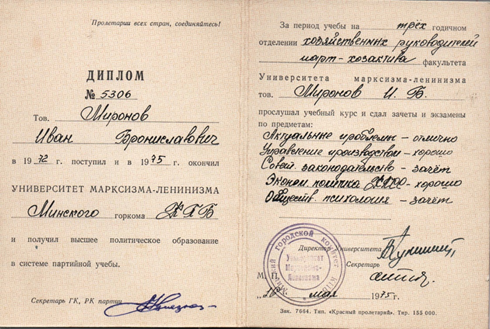 Пролетарии всех стран, соединяйтесь!
ДИПЛОМ
№ 5306
Тов. Миронов
Иван Брониславович
в 1972 г. поступил и в 1975 г. окончил
УНИВЕРСИТЕТ МАРКСИЗМА-ЛЕНИНИЗМА
Минского горкома КПБ
и получил высшее политическое образование
в системе партийной учебы.
Секретарь ГК, РК партии
За период учебы на трех годичном
отделении хозяйственных руководителей
парт-хозактива факультета
Университета марксизма-ленинизма
тов. Миронов И. Б.
прослушал учебный курс и сдал зачеты и экзамены
по предметам:
Актуальные проблемы - отлично
Управление производством - хорошо
Совет. законодательство - зачёт
Эконом политика КПСС - хорошо
Обществ. психология - зачёт
Директор Университета
Секретарь
М. П.
мая 1975 г.
Зак. 7064. Тип. «Красный пролетарий». Тир. 155 000.